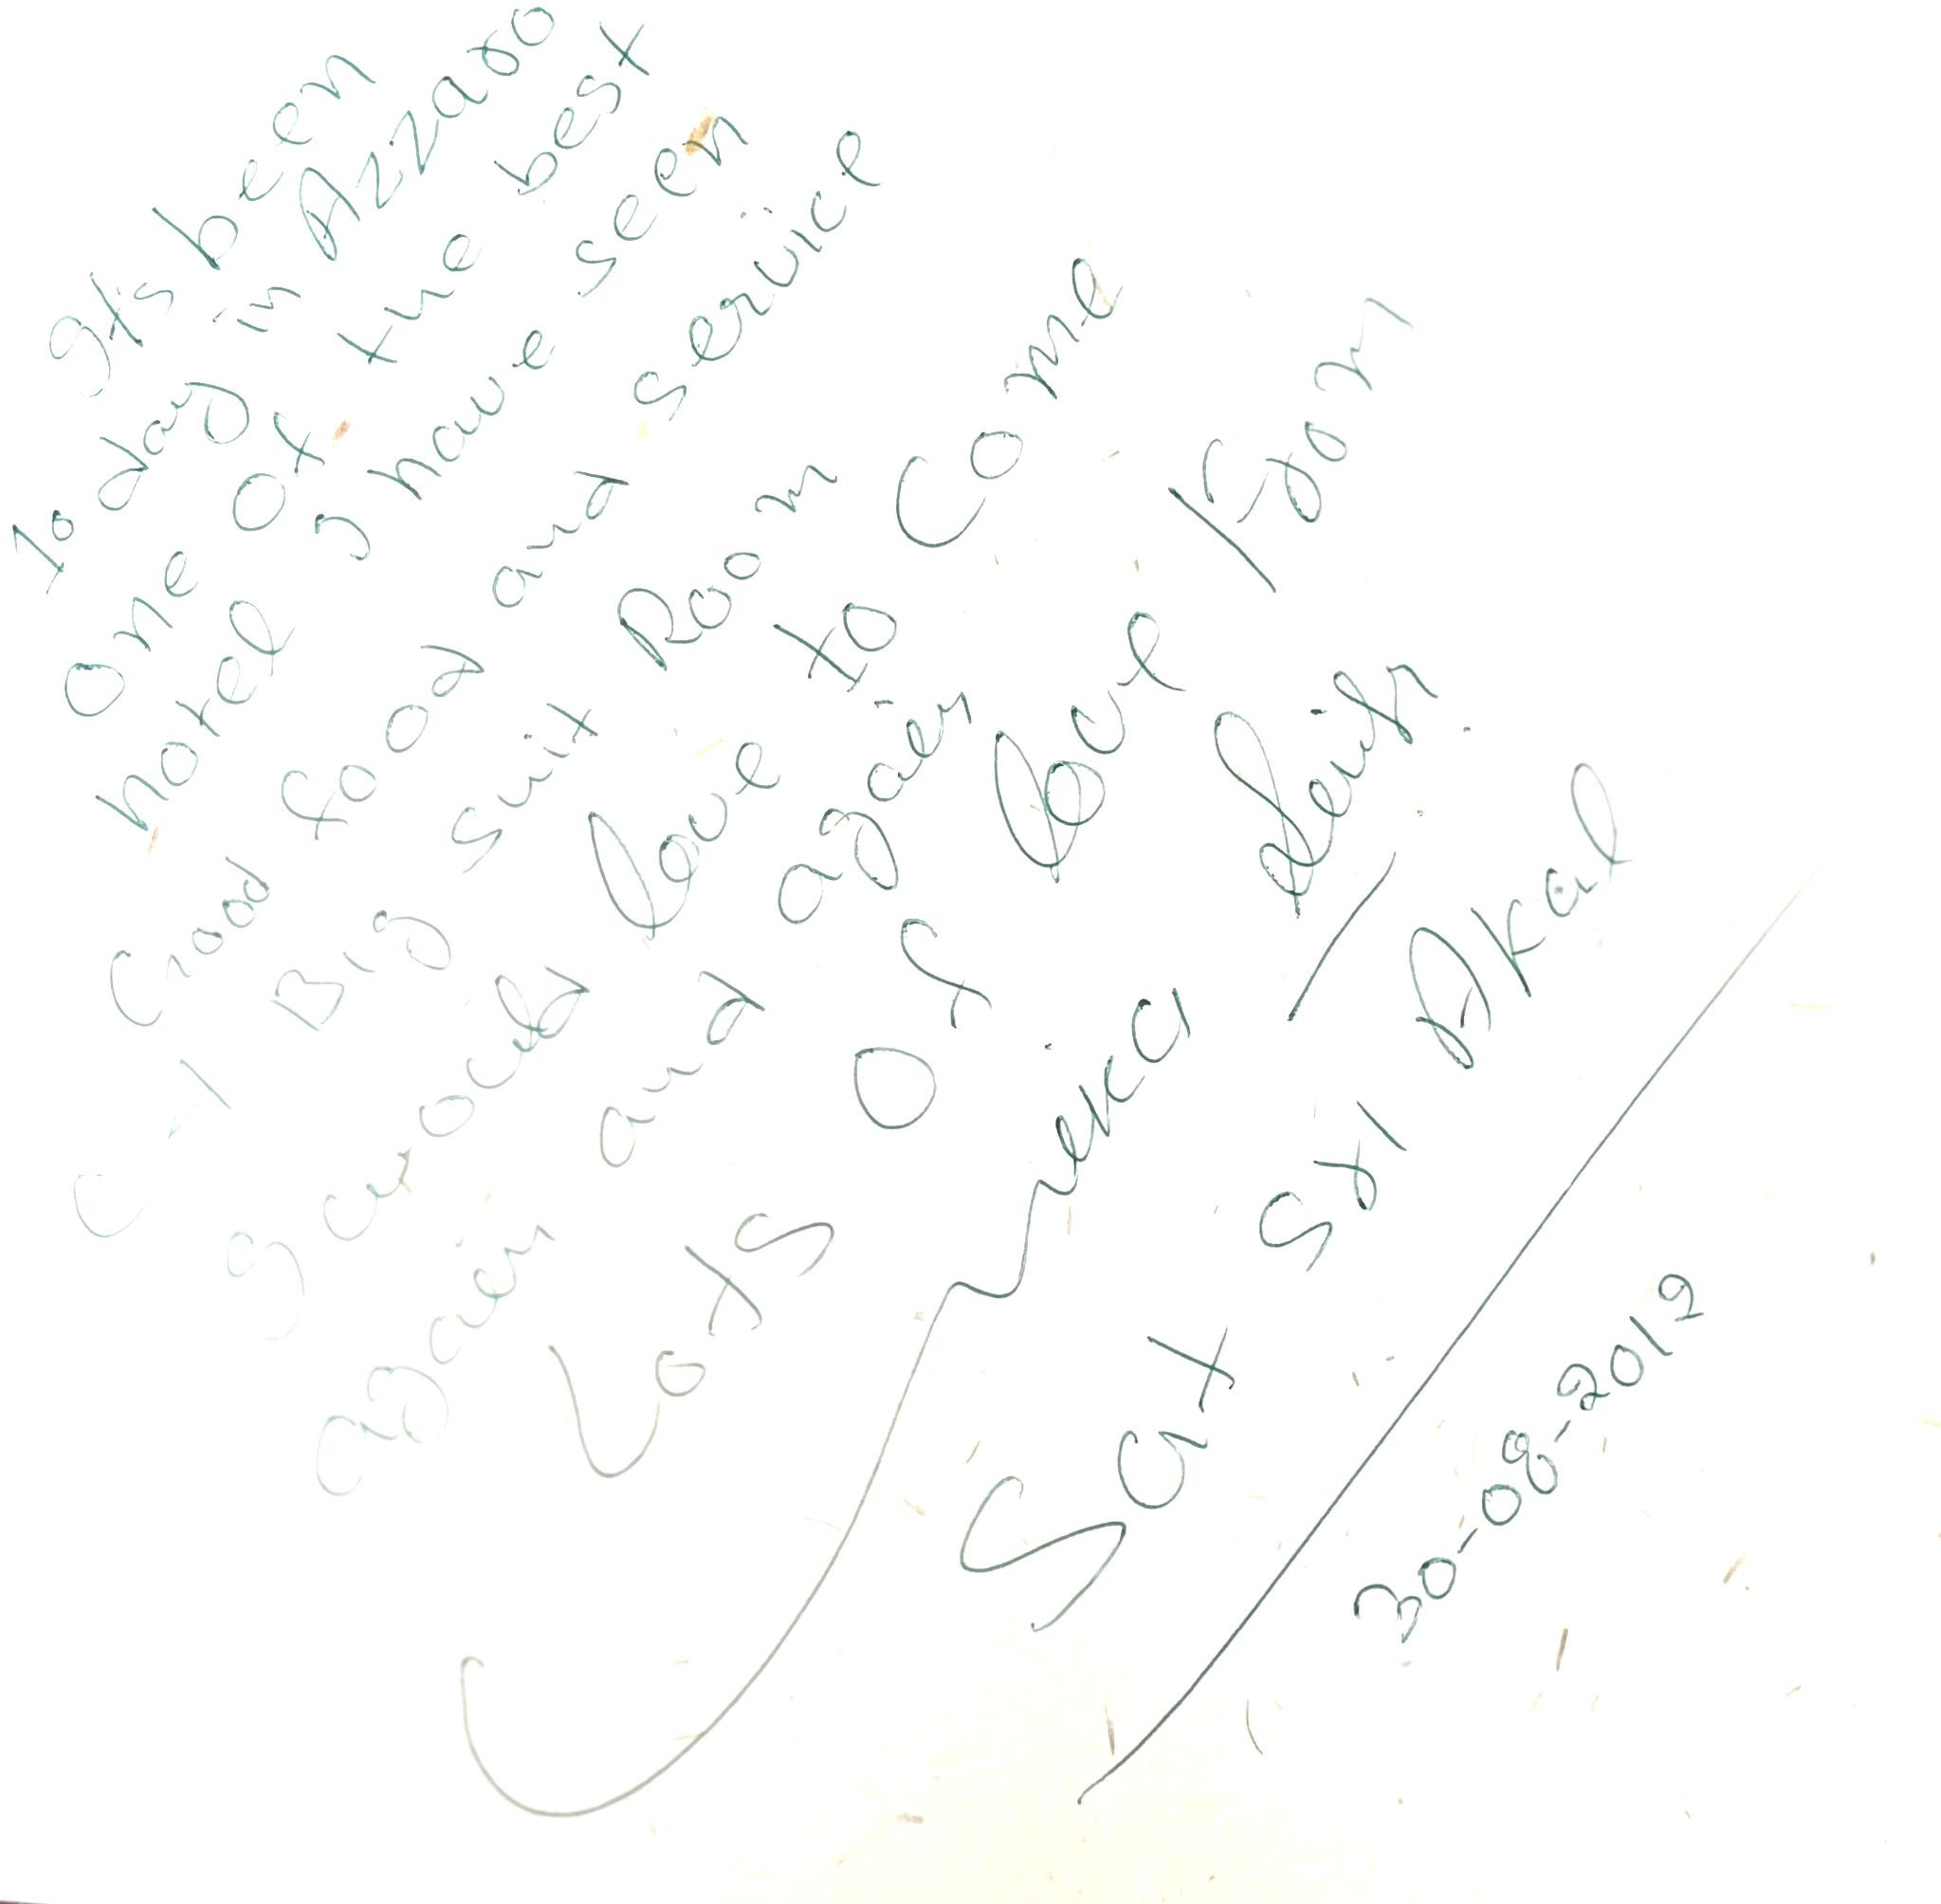 It's been
to day in Azzaro
one of the best
hotel I have seen
Good food and service
Big suit Room
I would love to come
again and again
Lots Of love from
Sukhvinder Singh
Sat Sri Akal
30-08-2019